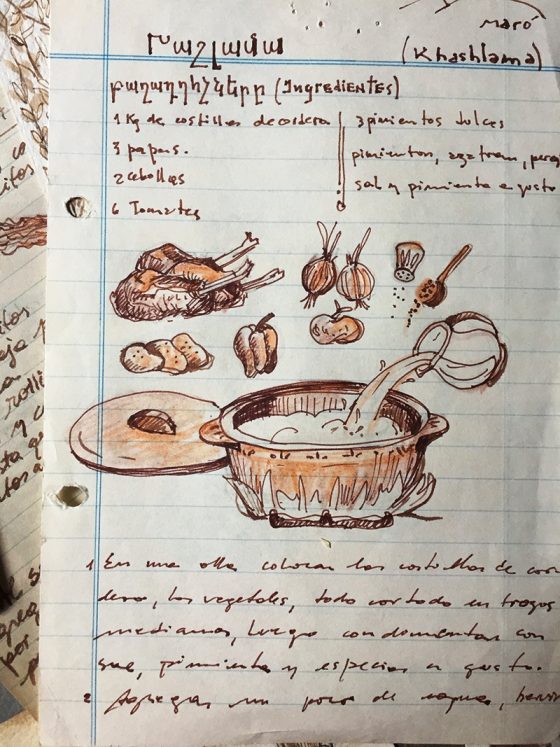 Maró
Խաշլամա
(Khashlama)
բաղադրիչները (Ingredientes)
1 Kg de costillas de cordero
3 papas.
2 cebollas
6 Tomates
3 pimientos dulces
pimentón, azafrán, perej
sal y pimienta a gusto
1 En una olla colocar las costillas de cor
dero, los vegetales, todo cortado en trozos
medianos, luego condimentar con
sal, pimienta y especias a gusto.
2 Agregar un poco de agua, hervir